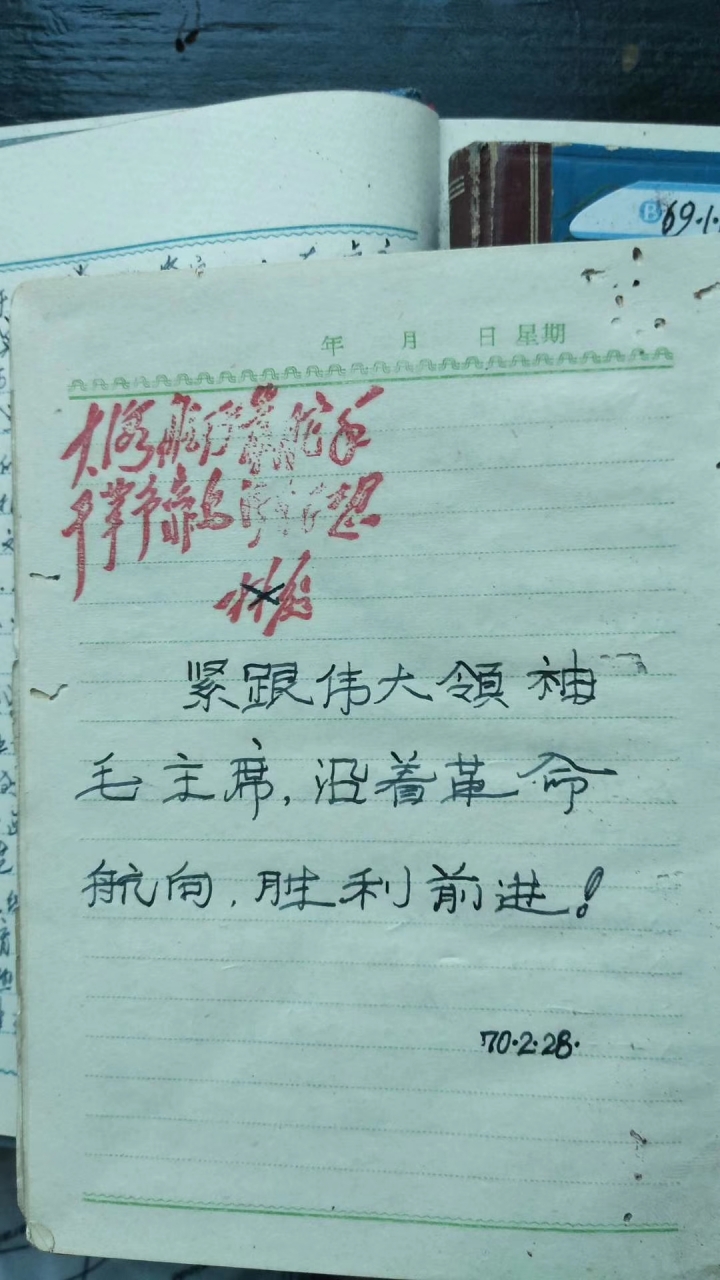 69·1·
年 月 日 星期
大海航行靠舵手
干革命靠毛泽东思想
林彪
紧跟伟大领袖
毛主席,沿着革命
航向,胜利前进!
70·2·28·